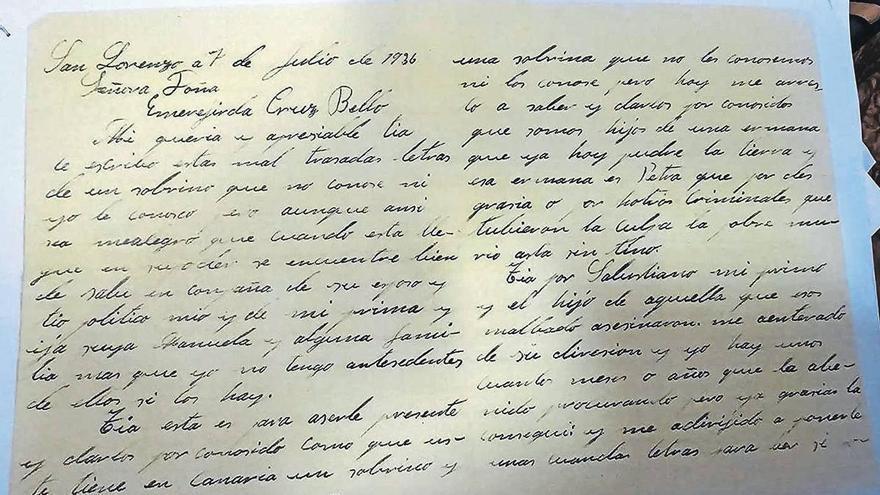 San Lorenzo a 7 de Julio de 1936
Señora Toña
Emerejirda Cruz Bello
Mi queria y apresiable tia
le escribo estas mal trasadas letras
de un sobrino que no conose ni
yo le conosco pero aunque ansi
sea mealegro que cuando esta lle-
gue en su poder se encuentre bien
de salu en conpaña de su esposo y
tio politico mio y de mi prima y
ija suya Manuela y alguna fami
lia mas que yo no tengo antesedentes
de ellos si los hay.
Tia esta es para aserle presente
y darlos por conosido como que us-
te tiene en Canaria un sobrino y
una sobrina que no les conosemos
ni los conose pero hoy me arres
to a saber y darlos por conosidos
que somos hijos de una ermana
que ya hoy pudre la tierra y
esa ermana es Petra que por des
grasia o or hotros criminales que
tubieron la culpa la pobre mu-
rio asta sin tino.
Tia por Salustiano mi primo
y el hijo de aquella que esos
malbado asesinaron me aenterado
de su diresion y yo hay unos
cuantos meses o años que la abe-
nido procurando pero ya grasias la
consegui y me adirijido a ponerle
unas cuandas letras para ver si